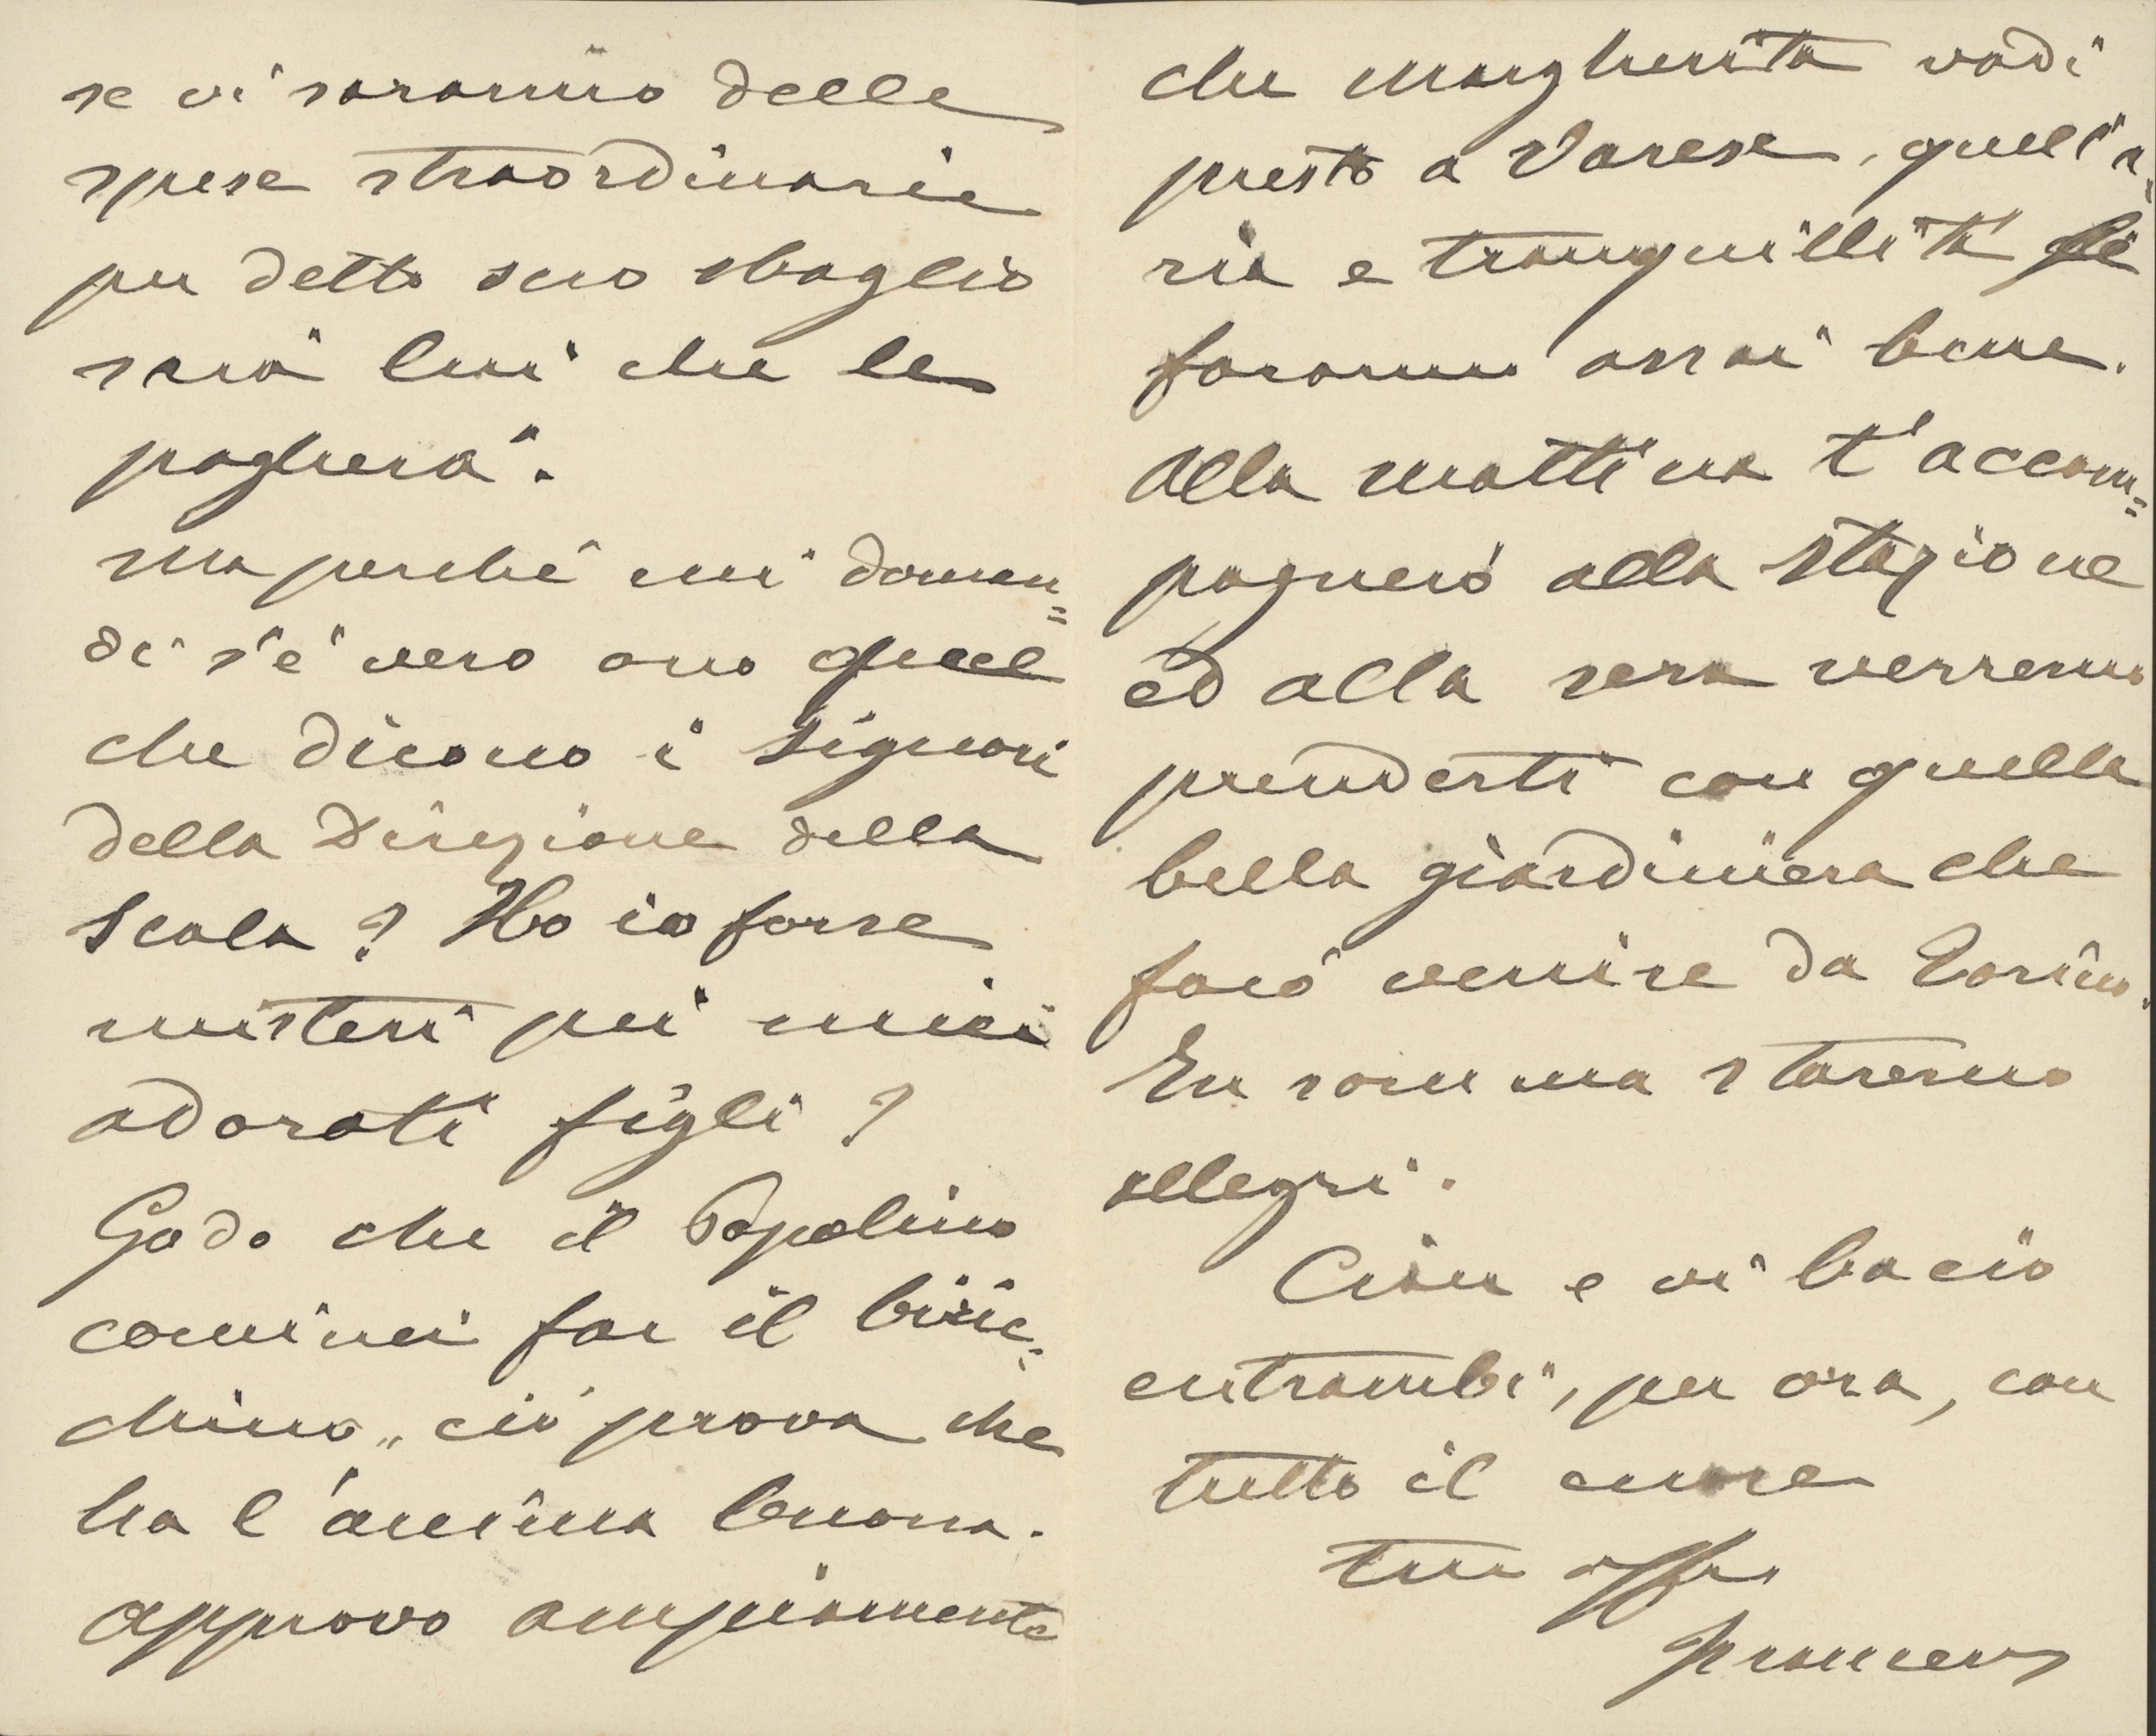 se vi saranno delle
spese straordinarie
per detto suo sbaglio
sarà lui che le
pagherà.
Ma perchè mi doman=
di s'è vero o no quel
che dicono i Signori
della Direzione della
Scala? Ho io forse
misteri pei miei
adorati figli?
Godo che il Popolino
cominci far il biric=
chino„ ciò prova che
ha l'anima buona.
Approvo ampiamente
che Margherita vadi
presto a Varese, quell'a=
ria e tranquillità le
faranno assai bene.
Alla mattina t'accom=
pagnerò alla stazione
ed alla sera verremo
prenderti con quella
bella giardiniera che
farò venire da Torino.
In somma staremo
allegri.
Ciau e vi bacio
entrambi, per ora, con
tutto il cuore
tuo affo
Francesco